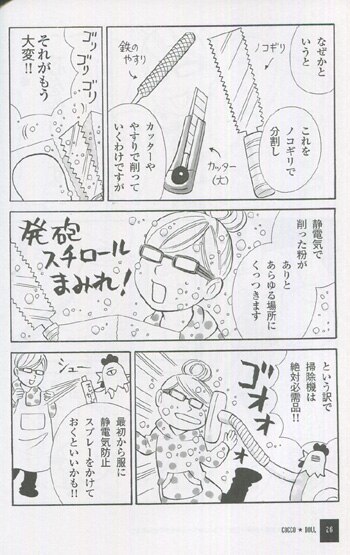 なぜかと
いうと
これを
ノコギリで
分割し
ノコギリ
鉄の
やすり
カッター
(大)
カッターや
やすりで削って
いくわけですが
ゴリ
ゴリ
ゴリ
それがもう
大変!!
静電気で
削った粉が
ありと
あらゆる場所に
くっつきます
発砲
スチロール
まみれ!
という訳で
掃除機は
絶対必需品!!
ゴオオ
シュー
最初から服に
静電気防止
スプレーをかけて
おくといいかも!!
COCCO★DOLL
26